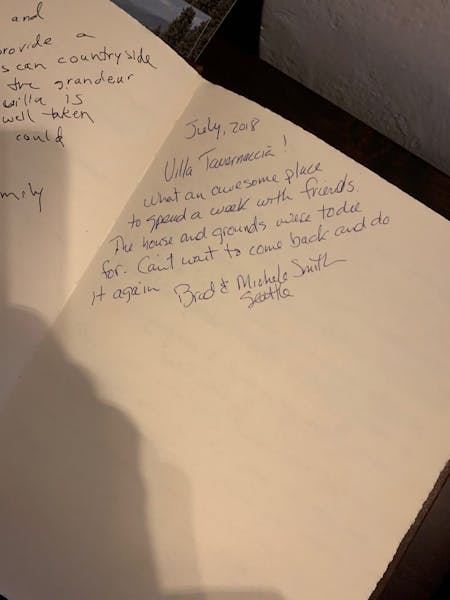 and
provide a
s can countryside
the grandeur
villa is
well taken
could
mily
July, 2018
Villa Tavernaccia!
What an awesome place
to spend a week with friends.
The house and grounds were to die
for. Can't wait to come back and do
it again Brad & Michele Smith
Seattle